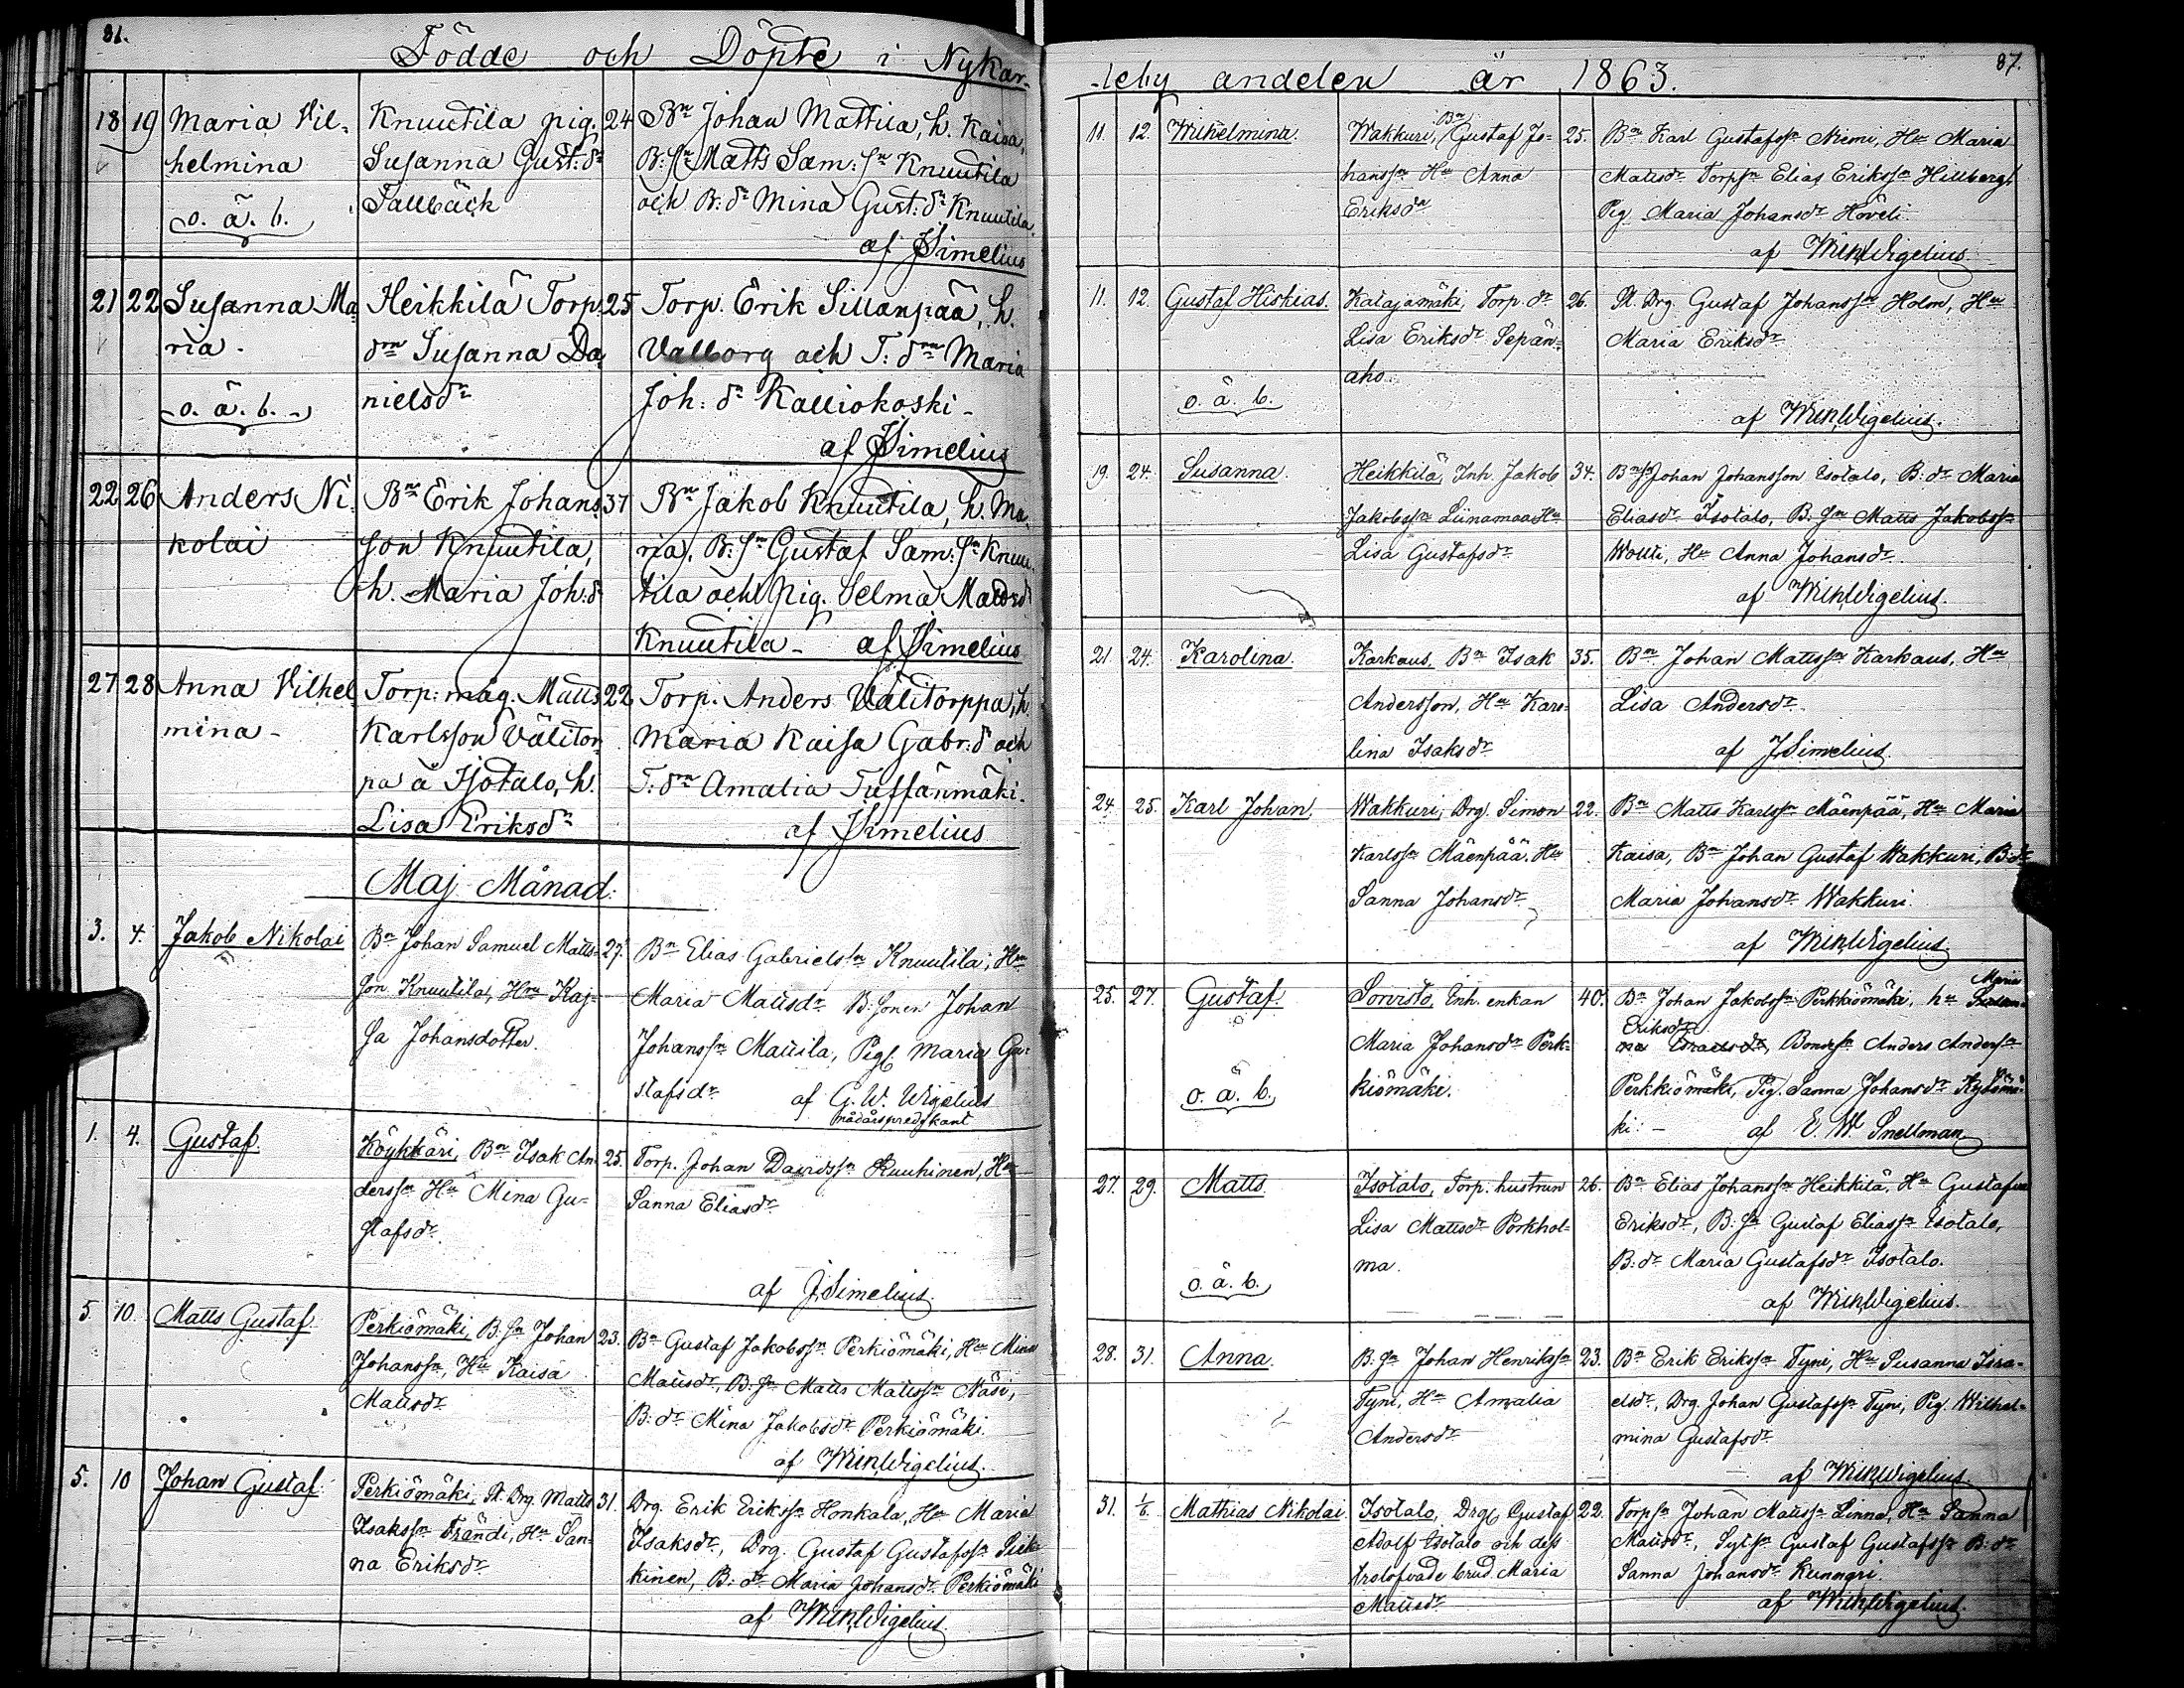 81.
Födde och Döpte i Nykar-
18 19 Maria Vil-
helmina
o. ä. b.
Knuutila pig.
Susanna Gust: dr
Tallbäck
24 Bn Johan Mattila, h. Kaisa,
B: sn Matts Sam: sn Knuutila
och B: dr Mina Gust: dr Knuutila.
af JSimelius
21 22 Susanna Ma
ria.
o. ä. b.
Heikkilä Torp.
drn Susanna Da
nielsdr
25 Torp. Erik Sillanpää, h.
Valborg och T: drn Maria
Joh: dr Kalliokoski
af JSimelius
22 26 Anders Ni
kolai
Bn Erik Johans
son Knuutila,
h. Maria Joh: d
37 Bn Jakob Knuutila, h. Ma
ria, B: sn Gustaf Sam: sn Knuu
tila och pig. Selma Mattsd
Knuutila - af JSimelius
27 28 Anna Vilhel
mina -
Torp: måg. Matts
Karlsson Välitor
pa å Isotalo, h.
Lisa Eriksdr
22 Torp. Anders Välitorppa, h.
Maria Kaisa Gabr: d och
T: drn Amalia Tuffänmäki.
af JSimelius
Maj Månad.
3. 4. Jakob Nikolai
Bn Johan Samuel Matts-
son Knuutila, Hru Kaj-
sa Johansdotter.
27. Bn Elias Gabrielssn Knuutila, Hu
Maria Mattsdr B: sonen Johan
Johanssn Mattila, Pig. Maria Gu-
stafsdr af G. W. Wigelius
nådårspredikant
1. 4. Gustaf.
Köykkäri, Bn Isak An
derssn Hu Mina Gu-
stafsdr.
25. Torp. Johan Davidssn Ruuhinen, Hu
Sanna Eliasdr
af JSimelius.
5. 10. Matts Gustaf.
Perkiömäki, B. sn Johan
Johanssn, Hu Kaisa
Mattsdr
23. Bn Gustaf Jakobssn Perkiömäki, Hu Mina
Mattsdr, B: sn Matts Mattssn Näsi,
B: dr Mina Jakobsdr Perkiömäki.
af WilhWigelius.
5. 10 Johan Gustaf.
Perkiömäki, St. Drg. Matts
Isakssn Frändi, Hu San-
na Eriksdr
31. Drg. Erik Erikssn Honkala, Hu Maria
Isaksdr, Drg. Gustaf Gustafssn Siek-
kinen, B: dr Maria Johansdr Perkiömäki
af WilhWigelius.
87.
-leby andelen år 1863.
11. 12. Wilhelmina.
Wakkuri, Bn Gustaf Jo-
hanssn Hu Anna
Eriksdr
25. Bn Karl Gustafssn Niemi, Hu Maria
Mattsdr Torpsn Elias Erikssn Hillberg
Pig Maria Johansdr Höveli
af WilhWigelius.
11. 12. Gustaf Hiskias.
o. ä. b.
Katajamäki, Torp. dr
Lisa Eriksdr Sepän-
aho.
26. St. Drg. Gustaf Johanssn Holm, Hu
Maria Eriksdr
af WilhWigelius.
19. 24. Susanna.
Heikkilä, Inh. Jakob
Jakobssn Liinamaa Hu
Lisa Gustafsdr
34. Bn sn Johan Johansson Isotalo, B: dr Maria
Eliasdr Isotalo, B. sn Matts Jakobssn
Woitti, Hu Anna Johansdr.
af WilhWigelius.
21 24. Karolina.
Karhaus, Bn Isak
Andersson, Hu Karo-
lina Isaksdr
35. Bn Johan Mattssn Karhaus, Hu
Lisa Andersdr.
af JSimelius.
24. 25. Karl Johan.
Wakkuri, Drg. Simon
Karlssn Mäenpää, Hu
Sanna Johansdr
22. Bn Matts Karlssn Mäenpää, Hu Maria
Kaisa, Bn Johan Gustaf Wakkuri, B: dr
Maria Johansdr Wakkuri.
af WilhWigelius.
25. 27. Gustaf.
o. ä. b.
Sorvisto, Inh. enkan
Maria Johansdr Perk-
kiömäki.
40. Bn Johan Jakobssn Perkkiömäki, hu Maria
Eriksdr, Bondesn Anders Anderssn
Perkkiömäki, Pig. Sanna Johansdr
ki. - af E. W. Snellman
27. 29. Matts.
o. ä. b.
Isotalo, Torp. hustrun
Lisa Mattsdr Porkhol-
ma.
26. Bn Elias Johanssn Heikkilä, Hu Gustafva
Eriksdr, B: sn Gustaf Eliassn Isotalo,
B: dr Maria Gustafsdr Isotalo.
af WilhWigelius.
28. 31. Anna.
B. sn Johan Henrikssn
Tyni, Hu Amalia
Andersdr
23. Bn Erik Erikssn Tyni, Hu Susanna Isra-
elsdr, Drg. Johan Gustafssn Tyni, Pig. Wilhel-
mina Gustafsdr
af WilhWigelius.
31. 1/6. Mathias Nikolai.
Isotalo, Drg. Gustaf
Adolf Isotalo och dess
trolofvade brud Maria
Mattsdr
22. Torpsn Johan Mattssn Linna, Hu Sanna
Mattsdr, Sytsn Gustaf Gustafssn B: dr
Sanna Johansdr Kunnari.
af WilhWigelius.